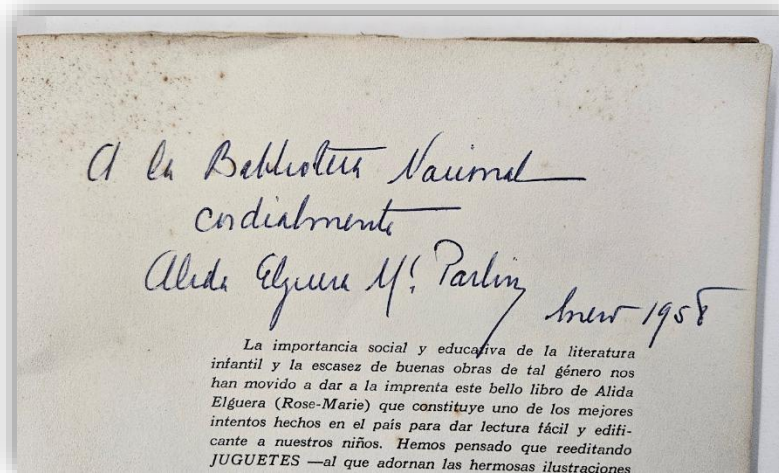 A la Biblioteca Nacional
cordialmente
Alida Elguera Mc. Parlin
Enero 1958
La importancia social y educativa de la literatura
infantil y la escasez de buenas obras de tal género nos
han movido a dar a la imprenta este bello libro de Alida
Elguera (Rose-Marie) que constituye uno de los mejores
intentos hechos en el país para dar lectura fácil y edifi-
cante a nuestros niños. Hemos pensado que reeditando
JUGUETES —al que adornan las hermosas ilustraciones